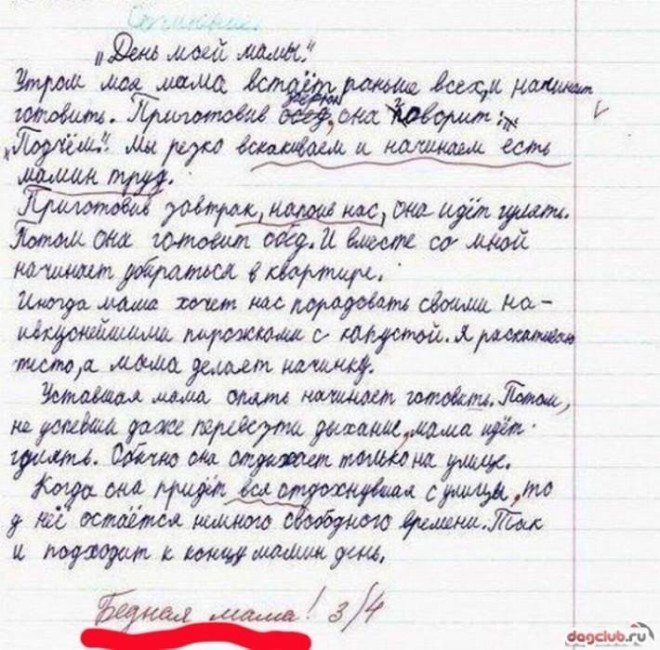 Сочинение.
„День моей мамы."
Утром моя мама встаёт раньше всех, и начинает
готовить. Приготовив завтрак, она говорит:
„Подъём". Мы резко вскакиваем и начинаем есть
мамин труд.
Приготовив завтрак, напоив нас, она идёт гулять.
Потом она готовит обед. И вместе со мной
начинает убираться в квартире.
Иногда мама хочет нас порадовать своими на-
ивкуснейшими пирожками с капустой. Я раскатываю
тесто, а мама делает начинку.
Уставшая мама опять начинает готовить. Потом,
не успевши даже перевезти дыхание, мама идёт
гулять. Обычно она отдыхает только на улице.
Когда она придёт вся отдохнувшая с улицы, то
у неё остаётся немного свободного времени. Так
и подходит к концу мамин день.
Бедная мама! 3/4
dogclub.ru